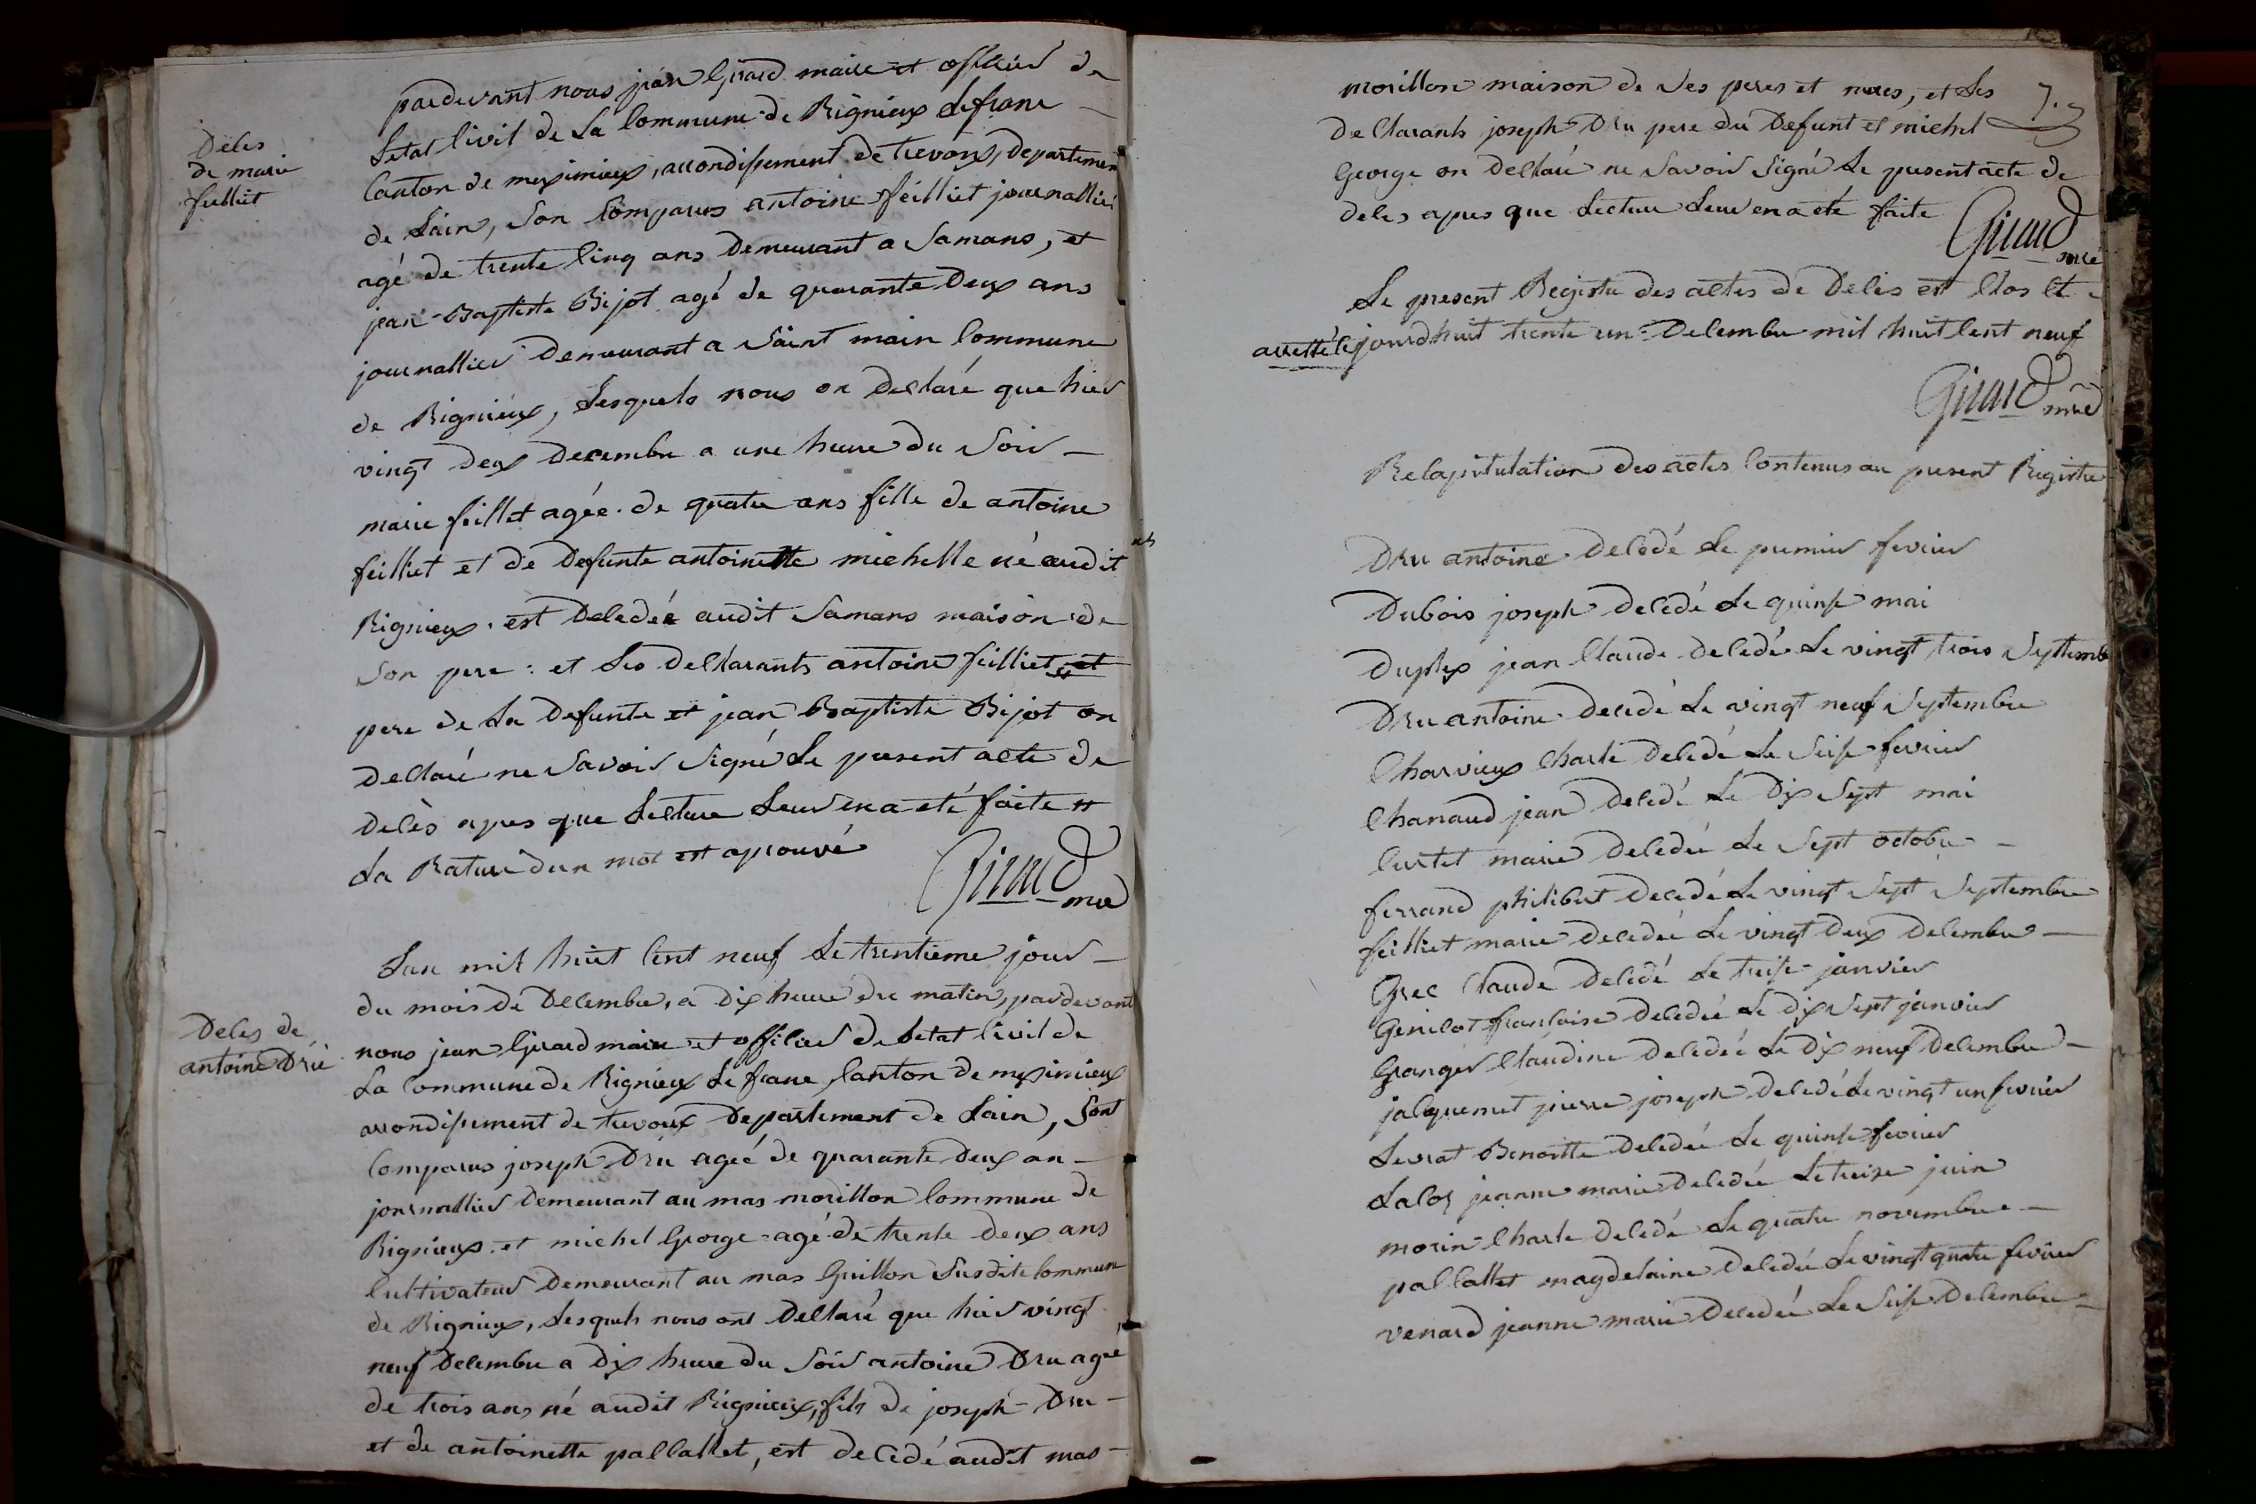 pardevant nous jean Girard maire et officier de
Letat Civil de La Commune de Rignieux Lefranc
Deces
de marie
feilliet
Canton de meximieux, arrondissement de trevoux, Departement
de Lain, Son Comparus antoine feilliet journallier
agé de trente Cinq ans Demeurant a Samans, et
jean-Baptiste Bijot agé de quarante Deux ans
journallier Demeurant a Saint main Commune
de Rignieux, Lesquels nous on Declaré que hier
vingt deux Decembre a une heure du Soir
marie feillet agée de quatre ans fille de antoine
feilliet et de Defunte antoinette michelle né audit
Rignieux est Decedée audit Samans maison de
Son pere : et Les Declarants antoine feilliet et
pere de La Defunte et jean Baptiste Bijot on
Declaré ne Savoir Signé Le present acte de
Decès apres que Lecture Leur en a eté faite #
La Rature dun mot est aprouvé
Girard mre
Lan mil huit Cent neuf Le trentieme jour
du mois de Decembre, a Dix heure du matin, pardevant
Deces de
antoine Dru
nous jean Girard maire et officier de Letat Civil de
La Commune de Rignieux Le franc Canton de meximieux
arrondissement de trevoux Departement de Lain, Sont
Comparus joseph Dru ageé de quarante Deux an
journallier Demeurant au mas morillon Commune de
Rignieux et michel George agé de trente Deux ans
Cultivateur Demeurant au mas Guillon Susdite Commune
de Rignieux, Lesquels nous ont Declaré que hier vingt
neuf Decembre a Dix heure du Soir antoine Dru ageé
de trois ans né audit Rignieux, fils de joseph Dru
et de antoinette pallallet, est decedé audit mas
morillon maison de Ses peres et meres, et Les
7.
Declarants joseph Dru pere du Defunt et michel
George on Declaré ne Savoir Signé Le present acte de
deces apres que Lecture Leur en a eté faite
Girard mre
Le present Registre des actes de Decès est Clos Et
arretté Cejourdhuit trente un Decembre mil huit Cent neuf
Girard mre
Recapitulation des actes Contenus au present Registre
Dru antoine Decedé Le premier fevrier
Dubois joseph Decedé Le quinse mai
Duplex jean Claude Decedé Le vingt trois Septemb
Dru antoine Decedé Le vingt neuf Septembre
Charvieux Charle Decedé Le Seise fevrier
Chanaud jean Decedé Le Dix Sept mai
Curtet marie Decedeé Le Sept octobre
ferrand philibert Decedé Le vingt Sept Septembre
feilliet marie Decedeé Le vingt Deux Decembre
Grec Claude Decedé Le treise janvier
Genilot françoise Decedeé Le Dix Sept janvier
Granger Claudine Decedeé Le Dix neuf Decembre
jacquemet pierre joseph Decedé Le vingt un fevrier
Levrat Benoitte Decedeé Le quinse fevrier
Laloz jeanne marie Decedeé Le treize juin
morin Charle Decedé Le quatre novembre
pallallet magdelaine Decedeé Le vingt quatre fevrier
venard jeanne marie Decedeé Le Seise Decembre